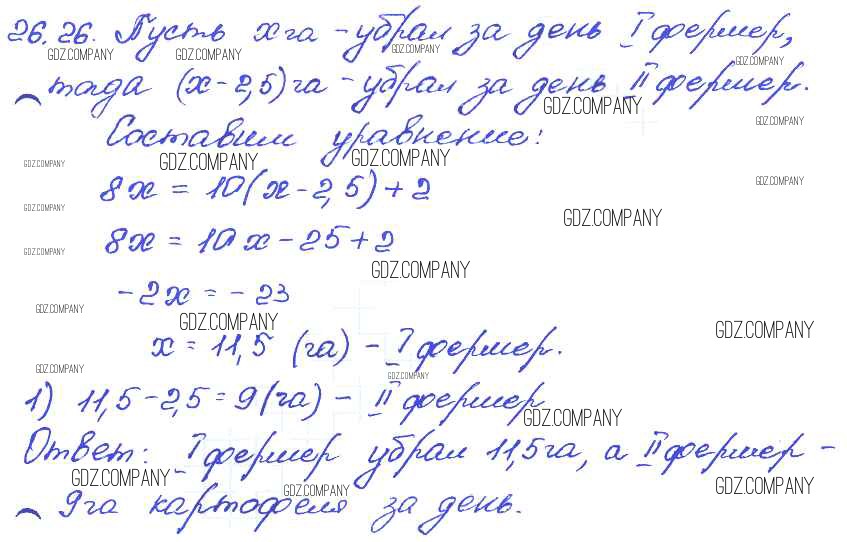 26.26. Пусть x га - убрал за день I фермер,
GDZ.COMPANY GDZ.COMPANY GDZ.COMPANY GDZ.COMPANY
тогда (x-2,5) га - убрал за день II фермер.
GDZ.COMPANY GDZ.COMPANY
Составим уравнение:
GDZ.COMPANY GDZ.COMPANY GDZ.COMPANY
8x = 10(x-2,5)+2
GDZ.COMPANY
GDZ.COMPANY GDZ.COMPANY
8x = 10x-25+2
GDZ.COMPANY
GDZ.COMPANY
-2x = -23
GDZ.COMPANY
GDZ.COMPANY GDZ.COMPANY
x = 11,5 (га) - I фермер.
GDZ.COMPANY GDZ.COMPANY
1) 11,5-2,5=9 (га) - II фермер
GDZ.COMPANY
Ответ: I фермер убрал 11,5 га, а II фермер -
GDZ.COMPANY GDZ.COMPANY GDZ.COMPANY
9 га картофеля за день.